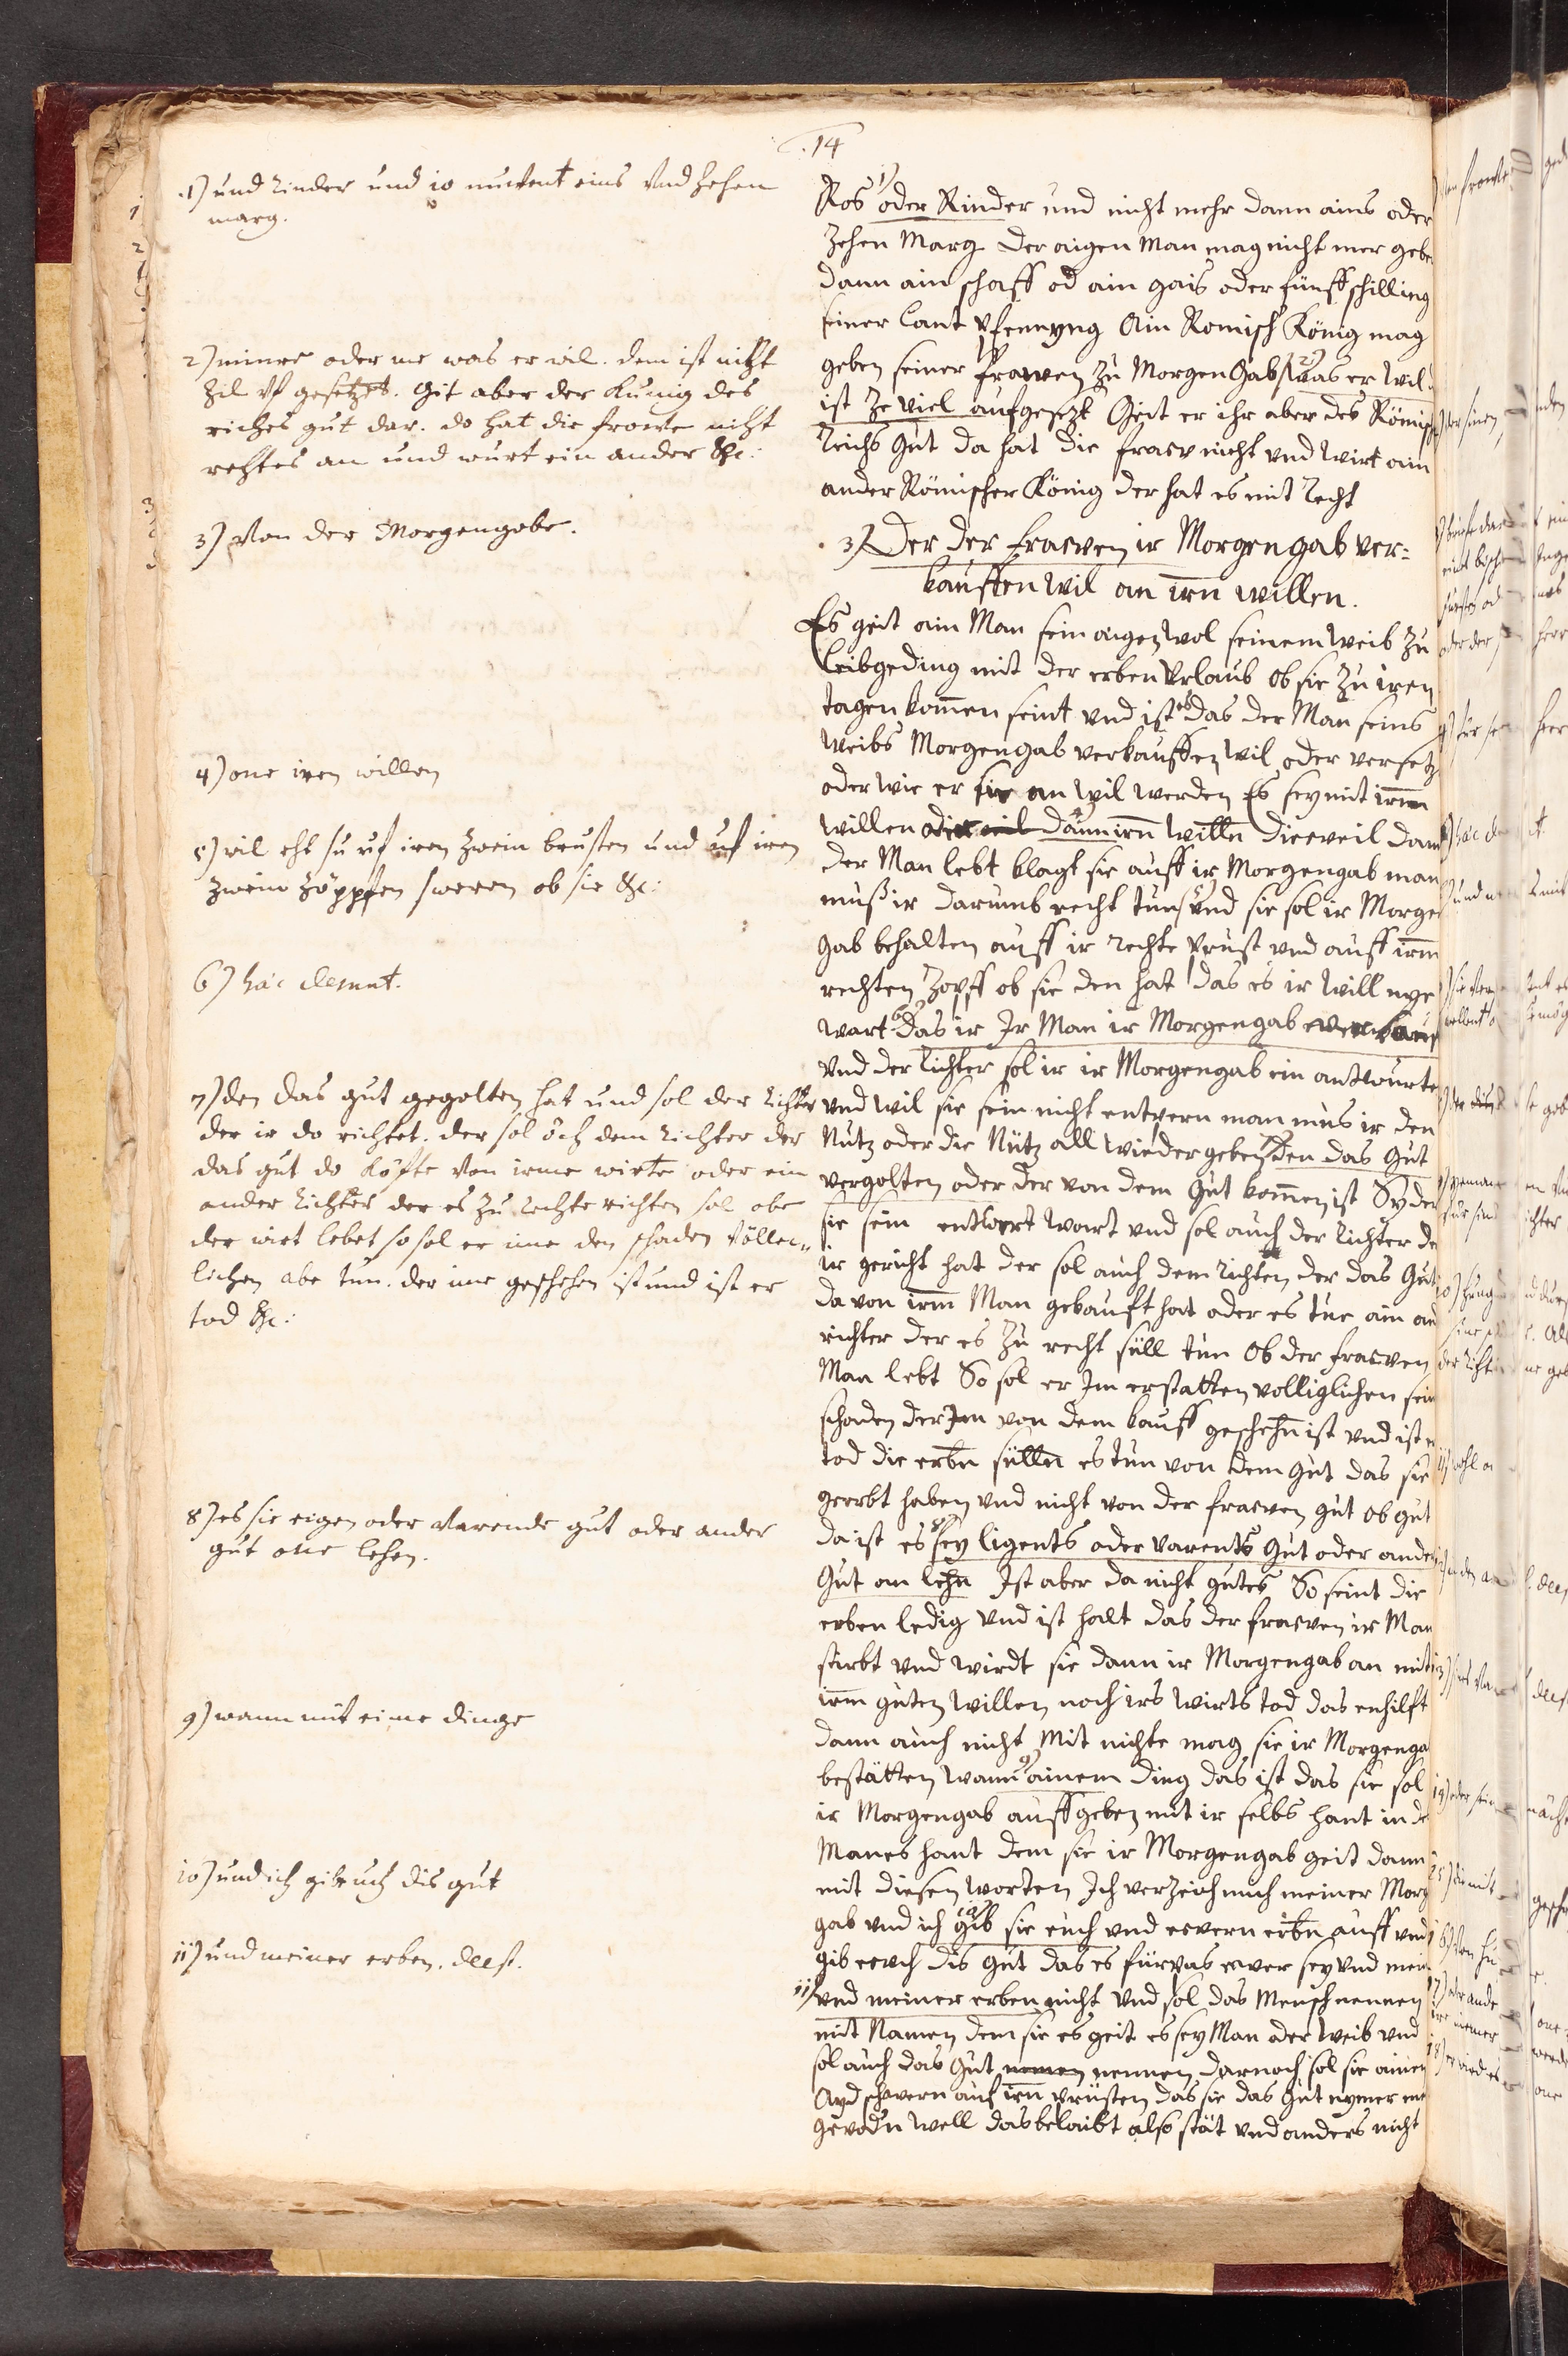 14
1) und Rinder und io nuwent eins und zehen
marg.
2) minre oder me was er wil. dem ist niht
zil uf gesetzet. Git aber der Kunig des
riches gut dar. do hat die frowe niht
rehtes an und wurt ein ander &c:
3) Von der Morgengobe.
4) one iren willen
5) wil eht su uf iren zwein brusten und uf iren
zwein zöppfen sweren ob sie &c:
6) haec desunt.
7) den das gut gegolten hat und sol der Richter
der ir do richtet. der sol öch dem Richter der
das gut do kofte von irme wirte oder ein
ander Richter der es zu rechte richten sol obe
der wirt lebet so sol er ime den schaden völlec-
lichen abe tun. der ime geschehen ist und ist er
tod &c:
8) es sie eigen oder varende gut oder ander
gut one lehen.
9) wann mit eime dinge
10) und ich gibe uch dis gut
11) und meiner erben. deest.
Ros 1) oder Rinder und nicht mehr dann ains oder
zehen Marg Der aigen Man mag nicht mer gebe
dann ain schaff od ain gais oder fünff schilling
seiner Lant pfennyng Ain Romisch König mag
geben seiner frawen zu MorgenGab 2) was er wil
ist ze viel aufgesetzt Geit er ihr aber des Römisch
Reichs Gut da hat die fraw nicht und wirt ain
ander Römischer König der hat es mit Recht
3) Der der frawen ir Morgengab ver=
kauffen wil an irn willen.
Es geit ain Man sein aigen wol seinem weib zu
Leibgeding mit der erben Urlaub ob sie zu iren
tagen komen seint und ist es das der Man seins
Weibs Morgengab verkauffen wil oder versetz
oder wie er sie an wil werden Es sey mit irm
willen oder dann irn willn dieweil dann
der Man lebt klagt sie auff ir Morgengab man
muß ir darumb recht tun 5) und sie sol ir Morge
Gab behalten auff ir rechte Prust und auff irm
rechten Zopff ob sie den hat das es ir will nye
wart 6) das ir Ir Man ir Morgengab verkauf
Und der Richter sol ir ir Morgengab ein antwurte
und wil sie sein nicht entpern man mus ir den
Nutz oder die Nütz all wieder geben 7) den das Gut
vergolten oder der von dem Gut komen ist Syder
sie sein entwert wart und sol auch der Richter de
ir gericht hat der sol auch dem richten der das Gut
da von irm Man gekauft hat oder es tue ain and
richter der es zu recht süll tun Ob der frawen
Man lebt So sol er Im erstatten volliglichen sein
schaden der Im von dem kauff geschehn ist und ist er
tod die erbn sülln es tun von dem Gut das sie
geerbt haben und nicht von der frawen gut ob gut
da ist es 8) sey ligents oder varents Gut oder ander
Gut on lehn Ist aber da nicht gutes So seint die
erben ledig und ist halt das der frawen ir Man
stirbt und wirdt sie dann ir Morgengab an mit
irm guten willen noch irs wirts tod das enhilft
dann auch nicht Mit nichte mag sie ir Morgenga
bestätten wann 9) ainem Ding das ist das sie sol
ir Morgengab auffgeben mit ir selbs hant in de
Manes hant dem sie ir Morgengab geit dann
mit diesen worten Ich verzeich mich meiner Morg
gab und ich 10) gib sie euch und ewern erbn auff und
gib ewch dis Gut das es fürpas ewer sey und mein
11) und meiner erben nicht Und sol das Mensch nennen
mit Namen dem sie es geit es sey Man oder Weib und
sol auch das Gut nennen darnach sol sie ainen
Ayd schwern auf irn prüsten das sie das Gut nymer me
gevodn well das belaibt also stät und anders nicht